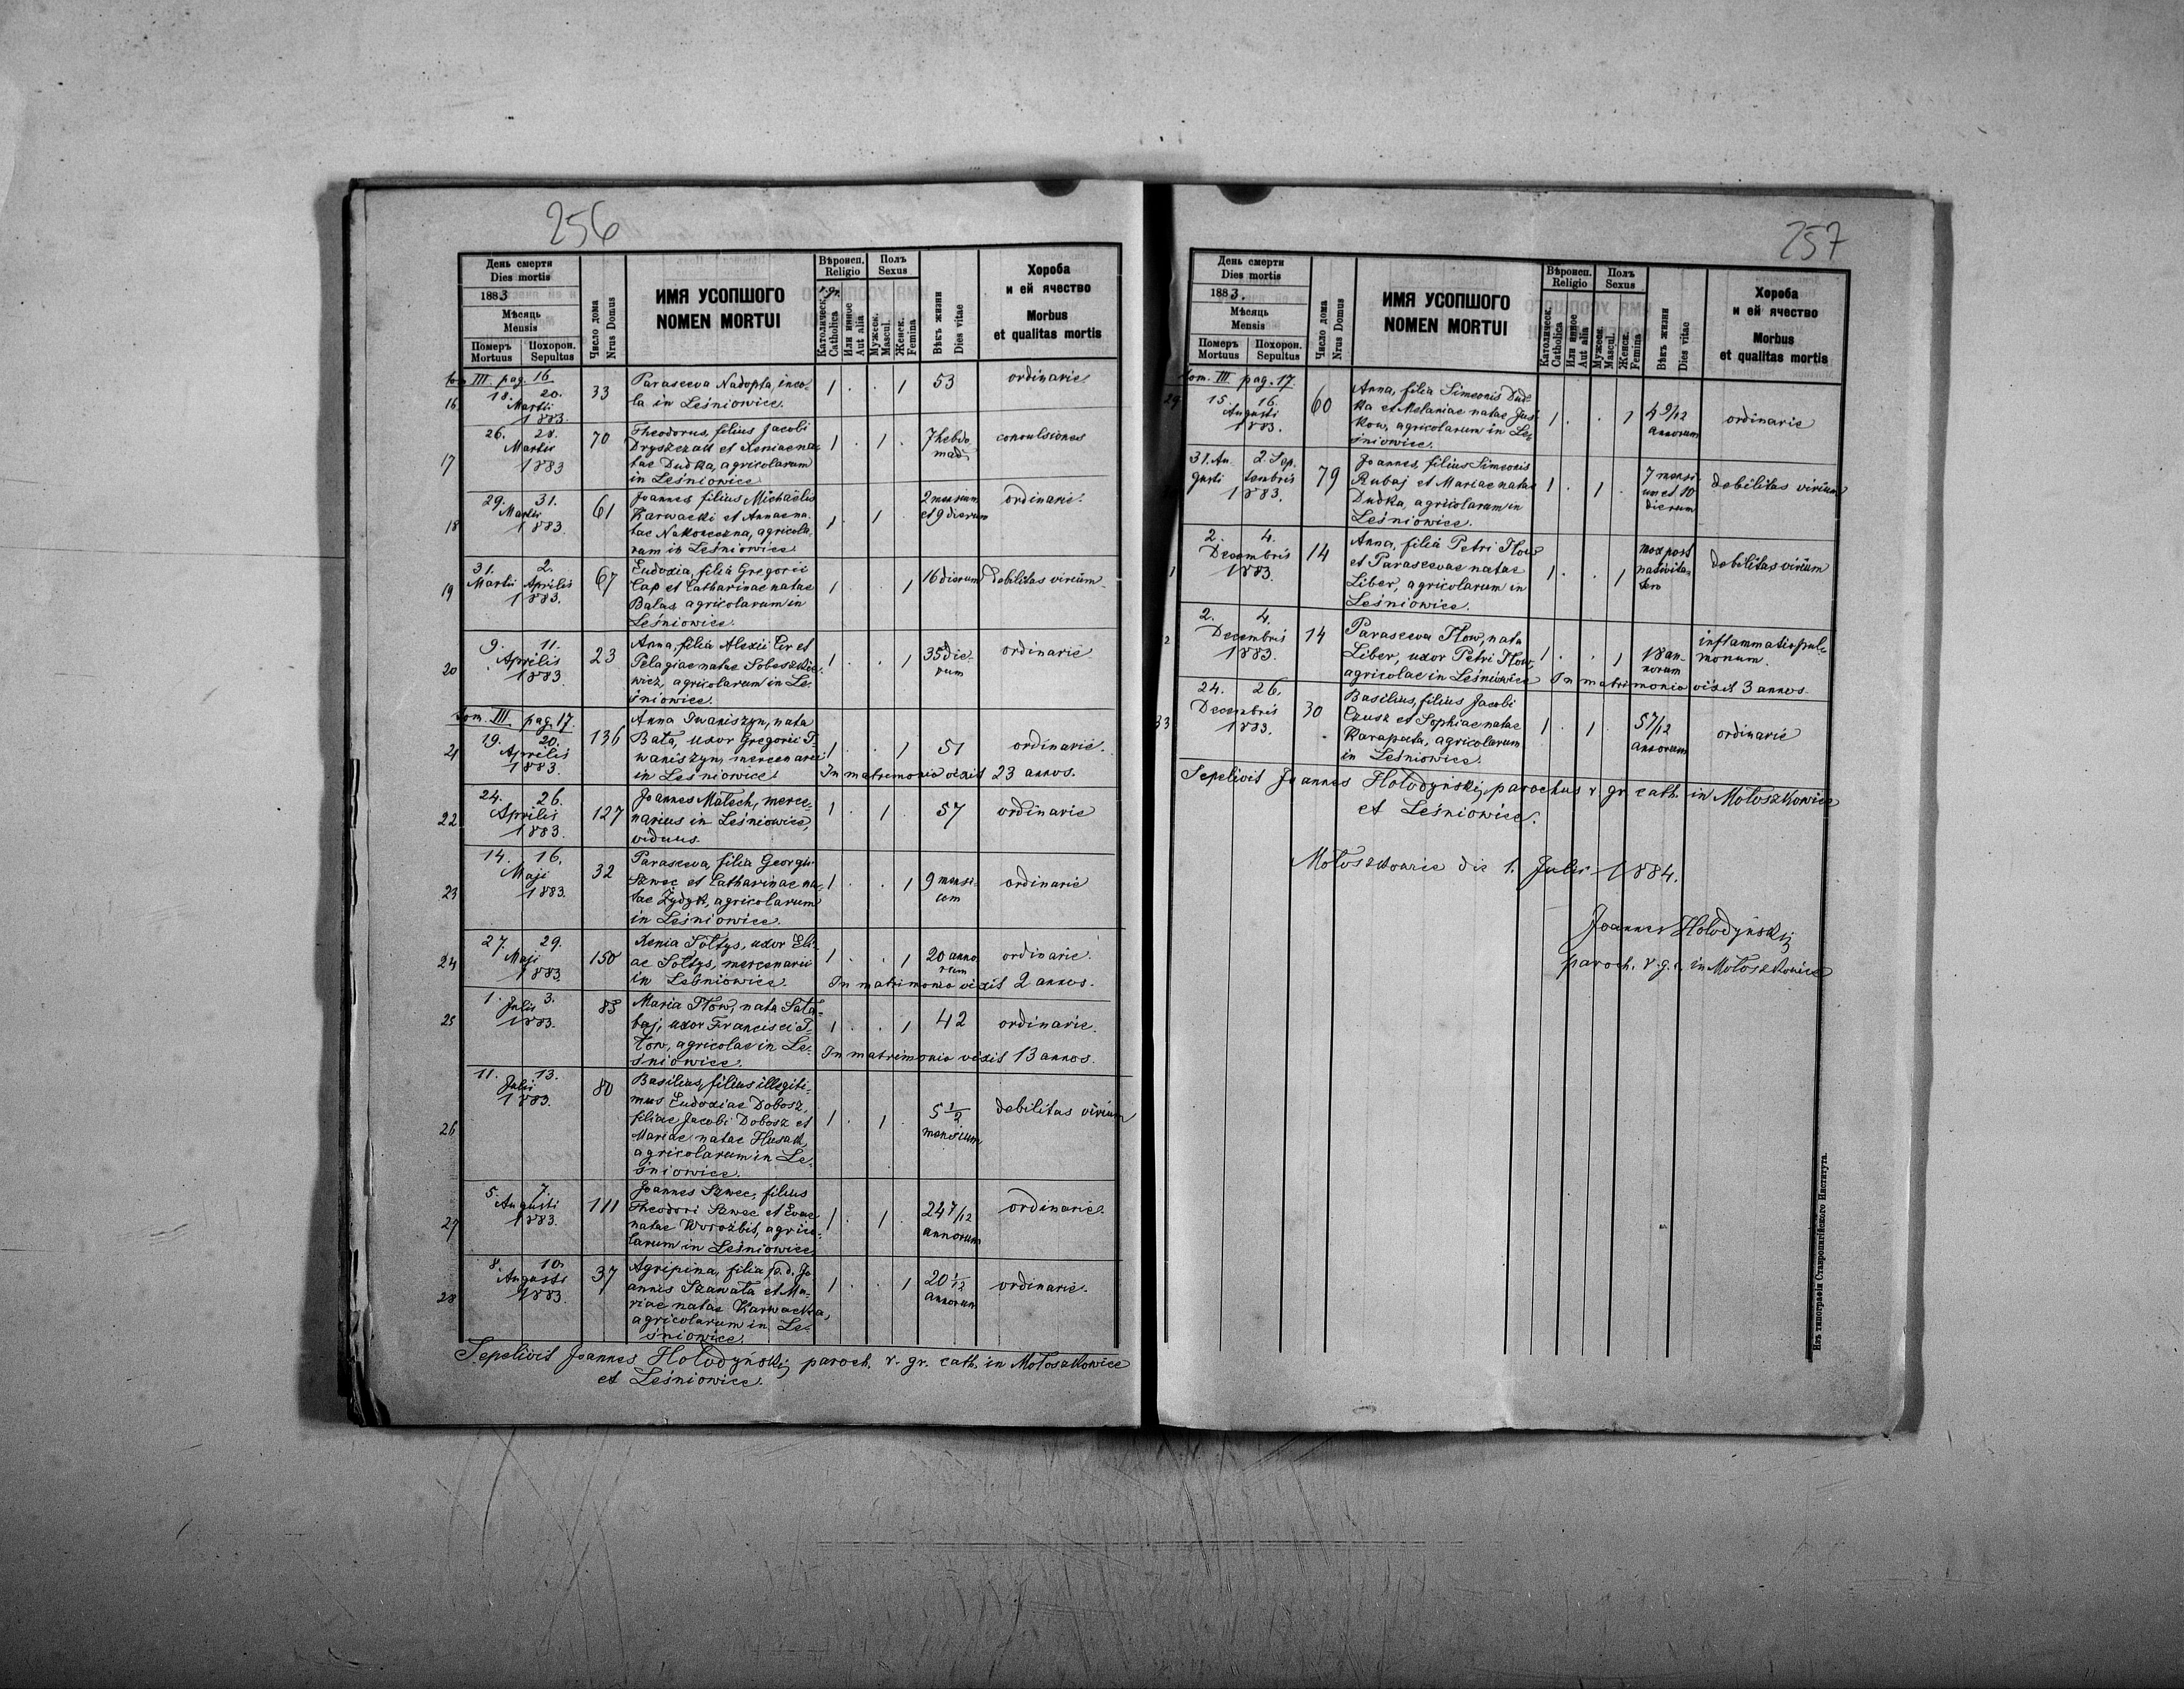 256
День смерти
Dies mortis
1883
Мѣсяць
Mensis
Померъ
Mortuus
Похорон.
Sepultus
Число дома
Nrus Domus
ИМЯ УСОПШОГО
NOMEN MORTUI
Вѣроисп.
Religio
Католическ.
Catholica
Или инное
Aut alia
Полъ
Sexus
Мужеск.
Mascul.
Женск.
Femina
Вѣкъ жизни
Dies vitae
Хороба
и ей ячество
Morbus
et qualitas mortis
gr.
tom III. pag. 16
16 18. 20. Martii 1883. 33 1 . . 1 53 ordinarie
Parasceva Nadopta, inco-
la in Leśniowice.
17 26. 28. Martii 1883 70 1 . 1 . 7 hebdo- madū convulsiones
Theodorus, filius Jacobi
Dryszczak et Xeniae na-
tae Dudka, agricolarum
in Leśniowice
18 29. 31. Martii 1883. 61 1 . 1 . 2 mensium et 9 dierum ordinarie.
Joannes, filius Michaëlis
Karwacki et Annae na-
tae Nakoneczna, agricola-
rum in Leśniowice.
19 31. Martii 2. Aprilis 1883. 67 1 . . 1 16 dierum debilitas virium
Eudoxia, filia Gregorii
Cap et Catharinae natae
Balas, agricolarum in
Leśniowice.
20 9. 11. Aprilis 1883. 23 1 . . 1 35 die- rum ordinarie
Anna, filia Alexii Cir et
Pelagiae natae Soboszkie-
wicz, agricolarum in Le-
śniowice.
tom. III. pag. 17.
21 19. 20. Aprilis 1883. 136 1 . . 1 51 ordinarie.
Anna Iwaniszyn, nata
Bata, uxor Gregorii I-
waniszyn, mercenarii
in Leśniowice.
In matrimonio vixit 23 annos.
22 24. 26. Aprilis 1883. 127 1 . 1 . 57 ordinarie
Joannes Małech, merce-
narius in Leśniowice,
viduus.
23 14. 16. Maji 1883. 32 1 . . 1 9 mensi- um ordinarie
Parasceva, filia Georgii
Szwec et Catharinae na-
tae Żydyk, agricolarum
in Leśniowice.
24 27. 29. Maji 1883 150 1 . . 1 20 anno- rum ordinarie.
Xenia Sołtys, uxor Eli-
ae Sołtys, mercenarii
in Leśniowice.
In matrimonio vixit 2 annos.
25 1. 3. Julii 1883. 83 1 . . 1 42 ordinarie.
Maria Tłow, nata Sała-
baj, uxor Francisci T-
łow, agricolae in Le-
śniowice.
In matrimonio vixit 13 annos.
26 11. 13. Julii 1883. 80 1 . 1 . 5 1/2 mensium debilitas virium
Basilius, filius illegiti-
mus Eudoxiae Dobosz,
filiae Jacobi Dobosz et
Mariae natae Husak,
agricolarum in Le-
śniowice.
27 5. 7. Augusti 1883. 111 1 . 1 . 24 7/12 annorum ordinarie.
Joannes Szwec, filius
Theodori Szwec et Evae
natae Worożbit, agrico-
larum in Leśniowice
28 8. 10. Augusti 1883. 37 1 . . 1 20 1/12 annorum ordinarie.
Agripina, filia p. d. Jo-
annis Szawała et Ma-
riae natae Karwacka,
agricolarum in Le-
śniowice.
Sepelivit Joannes Hołodyńskij paroch. r. gr. cath. in Mołoszkowice
et Leśniowice.
257
День смерти
Dies mortis
1883.
Мѣсяць
Mensis
Померъ
Mortuus
Похорон.
Sepultus
Число дома
Nrus Domus
ИМЯ УСОПШОГО
NOMEN MORTUI
Вѣроисп.
Religio
Католическ.
Catholica
Или инное
Aut alia
Полъ
Sexus
Мужеск.
Mascul.
Женск.
Femina
Вѣкъ жизни
Dies vitae
Хороба
и ей ячество
Morbus
et qualitas mortis
tom. III. pag. 17.
29 15. 16. Augusti 1883. 60 1 . . 1 4 9/12 annorum ordinarie
Anna, filia Simeonis Dud-
ka et Melaniae natae Jus-
kow, agricolarum in Le-
śniowice.
31. Au- gusti 2. Sep- tembris 1883. 79 1 . 1 . 7 mensi- um et 10 dierum debilitas virium
Joannes, filius Simeonis
Rubaj et Mariae natae
Dudka, agricolarum in
Leśniowice.
1 2. 4. Decembris 1883. 14 1 . . 1 mox post nativita- tem debilitas virium
Anna, filia Petri Tłow
et Parascevae natae
Liber, agricolarum in
Leśniowice.
2 2. 4. Decembris 1883. 14 1 . . 1 18 an- norum inflammatio pul- monum.
Parasceva Tłow, nata
Liber, uxor Petri Tłow,
agricolae in Leśniowice
In matrimonio vixit 3 annos.
33 24. 26. Decembris 1883. 30 1 . 1 . 5 7/12 annorum ordinarie
Basilius, filius Jacobi
Czusz et Sophiae natae
Karapata, agricolarum
in Leśniowice.
Sepelivit Joannes Hołodyńskij, parochus r. gr. cath. in Mołoszkowice
et Leśniowice.
Mołoszkowice die 1. Julii 1884.
Joannes Hołodyńskij
paroch. r. g. c. in Mołoszkowice
Изъ типографіи Ставропигійского Института.